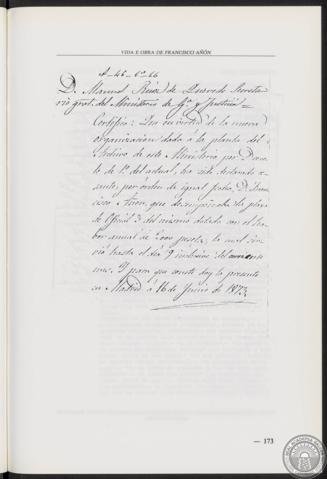 VIDA E OBRA DE FRANCISCO AÑÓN
A-45-6º-66
D. Manuel Ruiz de Quevedo Secreta
rio gral. del Ministerio de Gª y Justicia =
Certifico: Que en virtud de la nueva
organizacion dada á la planta del
Archivo de este Ministerio por Decre
to de 1º del actual, ha sido declarado ce
sante, por órden de igual fecha, D. Fran
cisco Añon, que desempeñaba la plaza
de Oficial 3º del mismo dotada con el ha
ber anual de 2000 pesetas, la cual sir
vió hasta el dia 9 inclusive del
mes. Y para que conste doy la presente
en Madrid á 16 de Junio de 1873
— 173